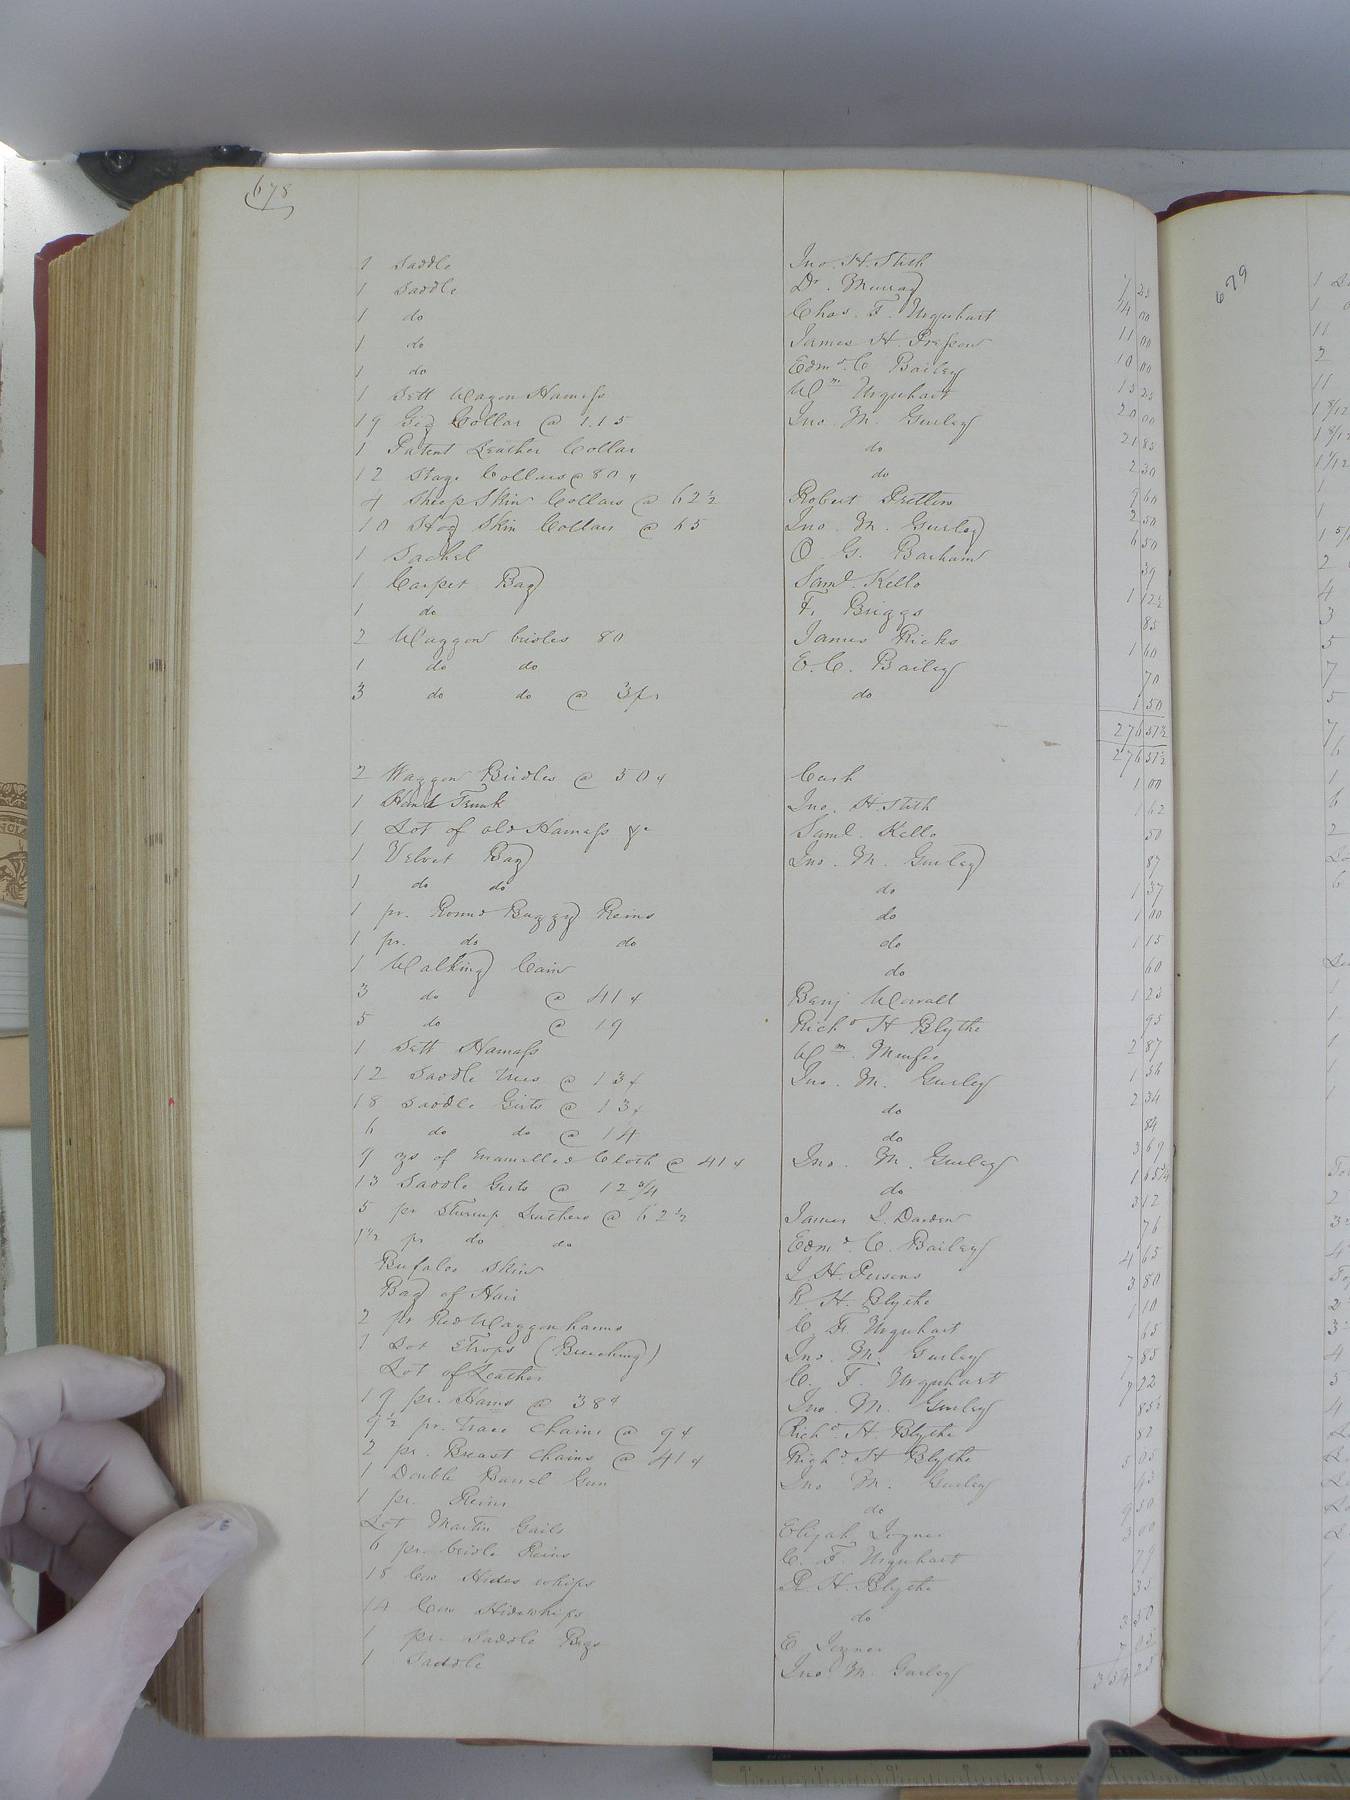 678
1 Saddle Jno. H. Stith 7 25
1 Saddle Dr. Murray 14 00
1 do Chas. F. Urquhart 11 00
1 do James H. Presson 10 00
1 do Edmd. C. Bailey 15 25
1 Sett Wagon Harness Wm Urquhart 20 00
19 Gig Collar @ 1.15 Jno. M. Gurley 21 85
1 Patent Leather Collar do 2 30
12 Stage Collars @ 80 ¢ do 9 60
4 Sheep Skin Collars @ 62 1/2 Robert 2 50
10 Hog Skin Collars @ 65 Jno. M. Gurley 6 50
1 Sachel O. G. Barham 39
1 Carpet Bag Saml. Kello 1 12 1/2
1 do F. Briggs 85
2 Waggon bridles 80 James Ricks 1 60
1 do do E. C. Bailey 70
3 do do @ do 1 50
276 57 1/2
276 57 1/2
2 Waggon Bridles @ 50 ¢ Cash 1 00
1 Hand Trunk Jno. H. Stith 1 62
1 Lot of old Harness &c Saml. Kello 50
1 Velvet Bag Jno. M. Gurley 87
1 do do do 1 37
1 pr. Round Buggy Reins do 1 00
1 pr. do do do 1 15
1 Walking Cain do 60
3 do @ 41 ¢ Benj Worrall 1 23
5 do @ 19 Richd H Blythe 95
1 Sett Harness Wm. 2 87
12 Saddle trees @ 13 ¢ Jno. M. Gurley 1 56
18 Saddle Girts @ 13 ¢ do 2 34
6 do do @ 14 do 84
9 yds of Enamelled Cloth @ 41 ¢ Jno. M. Gurley 3 69
13 Saddle Girts @ 12 3/4 do 1 65 3/4
5 pr Stirrup Leathers @ 62 1/2 James L. Darden 3 12
1 1/2 pr do do Edmd. C. Bailey 76
Bufaloe Skin J. H. Persons 4 65
Bag of Hair R. H. Blythe 3 80
2 pr Red Waggon hames C. F. Urquhart 1 10
1 Lot Strops (Breeching) Jno. M. Gurley 65
Lot of Leather C. F. Urquhart 7 85
19 pr. Hames @ 38 ¢ Jno. M. Gurley 7 22
9 1/2 pr. trace Chains @ 9 ¢ Richd H. Blythe 85 1/2
2 pr. Breast Chains @ 41 ¢ Righd H Blythe 82
1 Double Barrel Gun Jno M. Gurley 5 05
1 pr. Reins do
Lot Martin Gails Elijah Joyner
6 pr. bridle Reins C. F. Urquhart
18 Cow Hides whips R. H. Blythe
14 Cow Hide whips do 3 50
1 pr. Saddle Bags E Joyner
1 Saddle Jno. M. Gurley
679